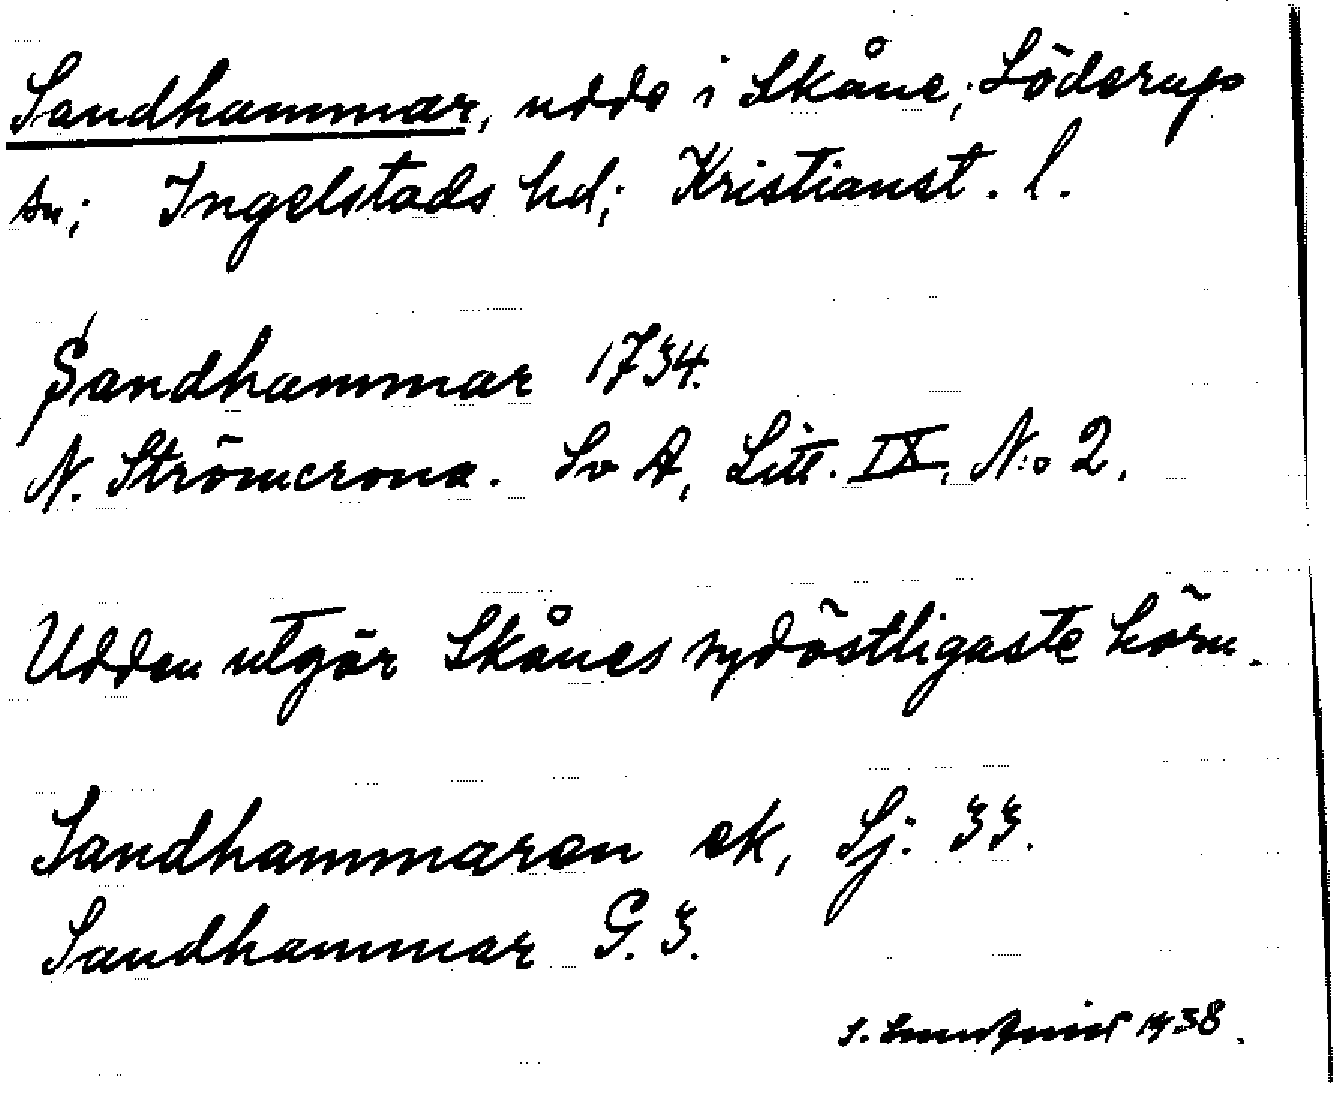 Sandhammar, udde i Skåne; Löderups
sn; Ingelstads hd; Kristianst. l.
Sandhammar 1734.
N. Strömcrona. Sv A, Litt. IX, N:o 2.
Udden utgör Skånes sydöstligaste hörn.
Sandhammaren ek, Sj. 33.
Sandhammar G. 3.
S. 1938.